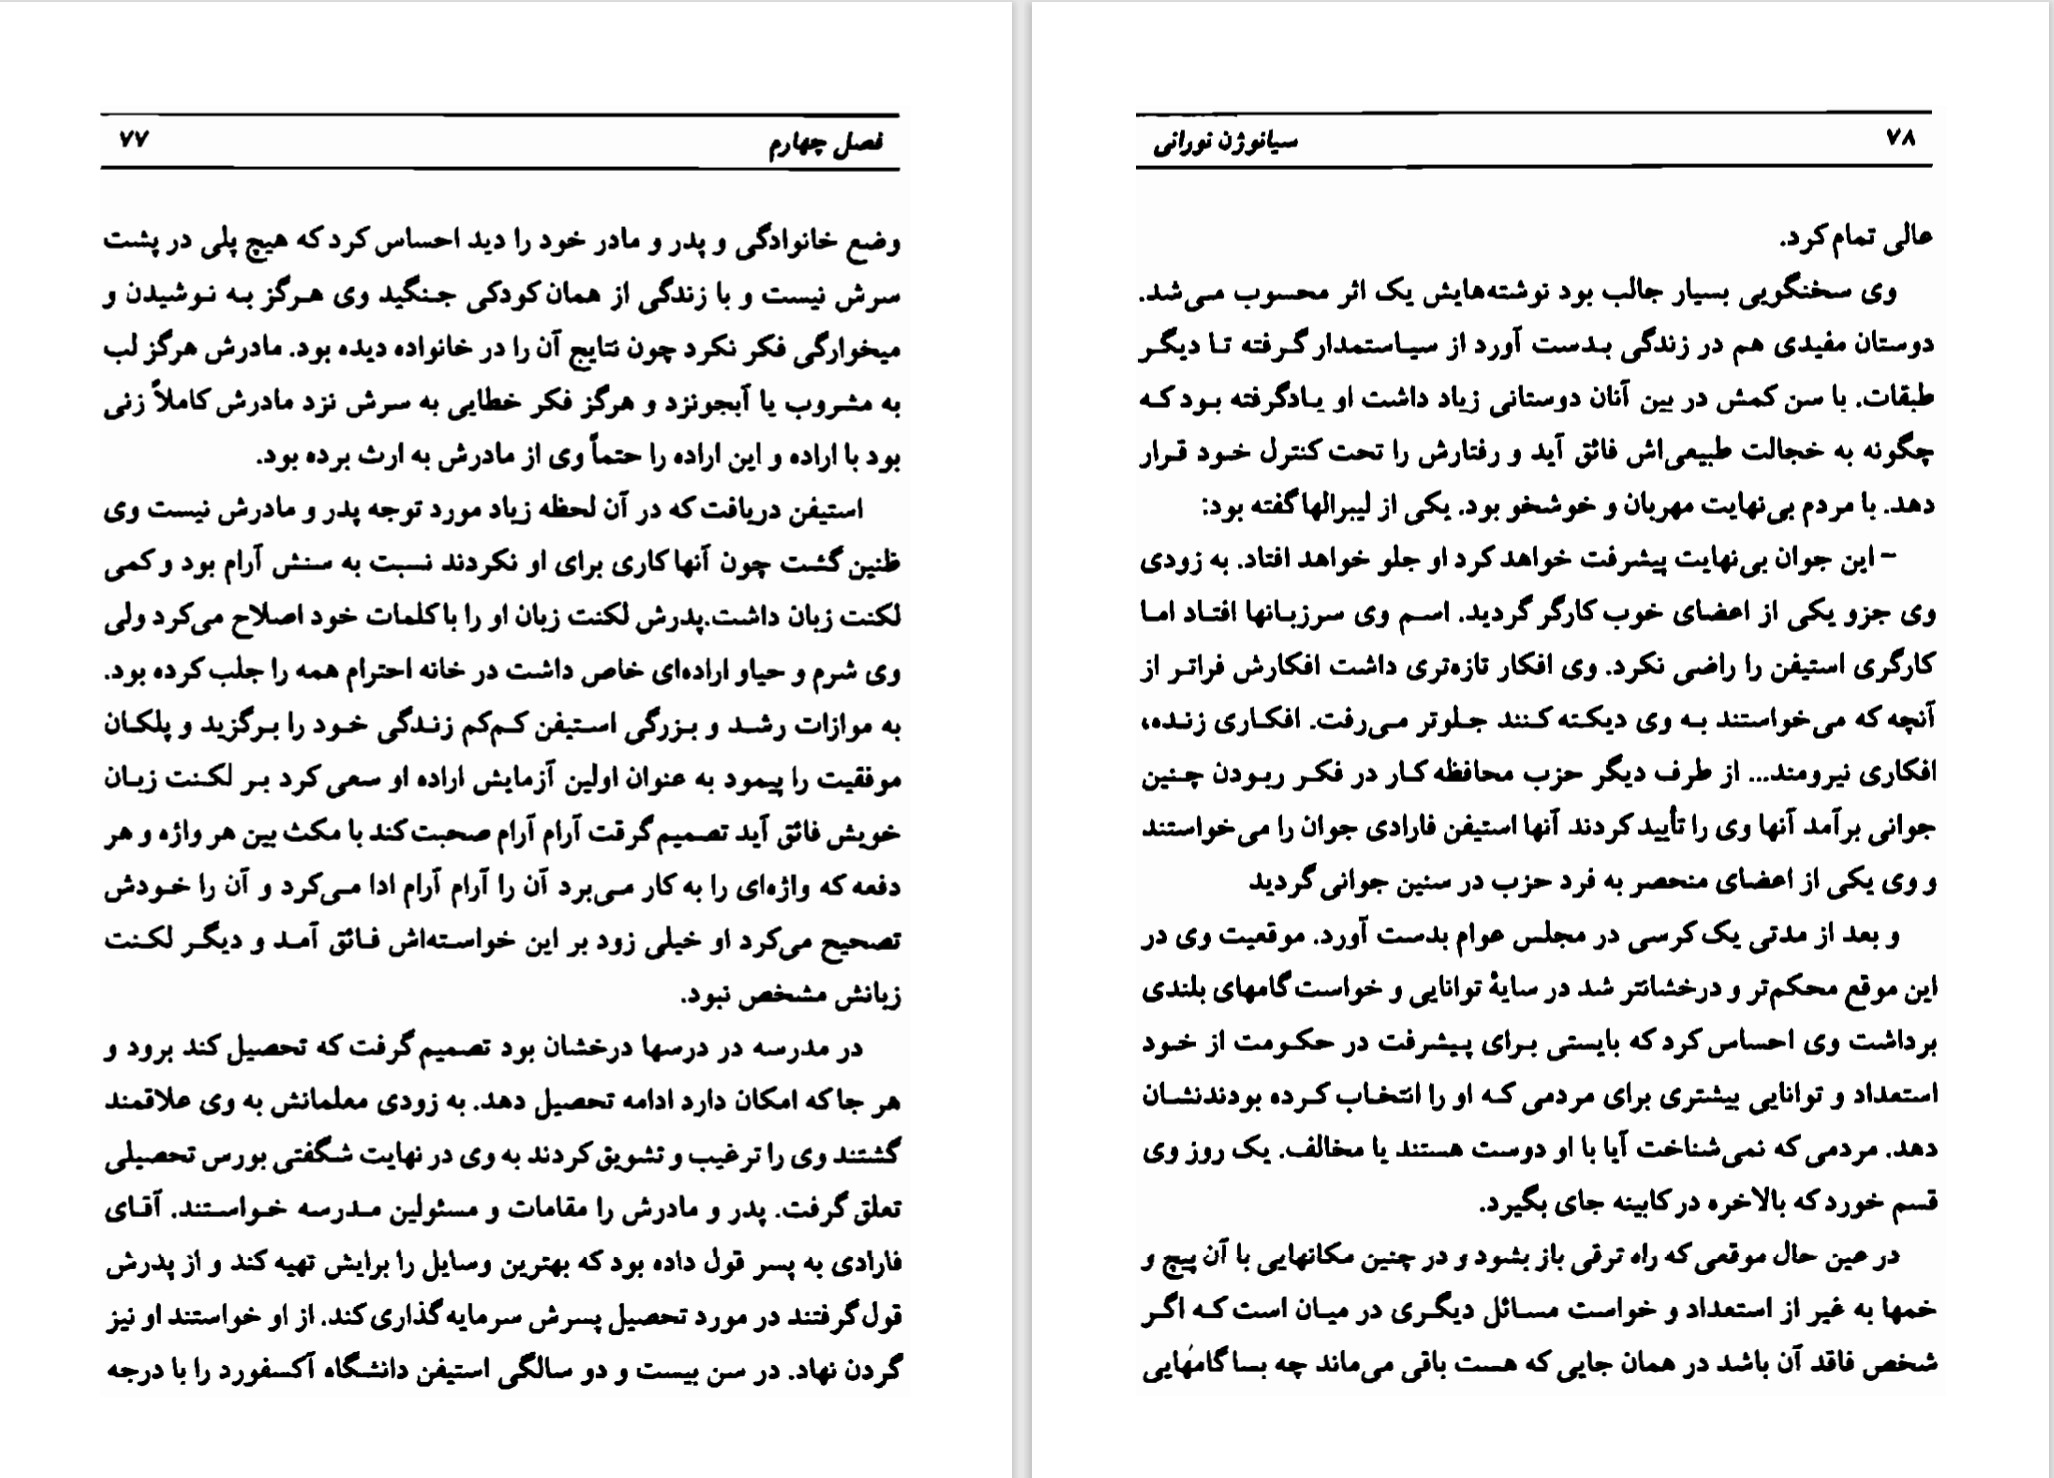 فصل چهارم ۷۷
وضع خانوادگی و پدر و مادر خود را دید احساس کرد که هیچ پلی در پشت
سرش نیست و با زندگی از همان کودکی جنگید وی هرگز به نوشیدن و
میخوارگی فکر نکرد چون نتایج آن را در خانواده دیده بود. مادرش هرگز لب
به مشروب یا آبجونزد و هرگز فکر خطایی به سرش نزد مادرش کاملاً زنی
بود با اراده و این اراده را حتماً وی از مادرش به ارث برده بود.
استیفن دریافت که در آن لحظه زیاد مورد توجه پدر و مادرش نیست وی
ظنین گشت چون آنها کاری برای او نکردند نسبت به سنش آرام بود و کمی
لکنت زبان داشت.پدرش لکنت زبان او را با کلمات خود اصلاح می‌کرد ولی
وی شرم و حیاو اراده‌ای خاص داشت در خانه احترام همه را جلب کرده بود.
به موازات رشد و بزرگی استیفن کم‌کم زندگی خود را برگزید و پلکان
موفقیت را پیمود به عنوان اولین آزمایش اراده او سعی کرد بر لکنت زبان
خویش فائق آید تصمیم گرقت آرام آرام صحبت کند با مکث بین هر واژه و هر
دفعه که واژه‌ای را به کار می‌برد آن را آرام آرام ادا می‌کرد و آن را خودش
تصحیح می‌کرد او خیلی زود بر این خواسته‌اش فائق آمد و دیگر لکنت
زبانش مشخص نبود.
در مدرسه در درسها درخشان بود تصمیم گرفت که تحصیل کند برود و
هر جا که امکان دارد ادامه تحصیل دهد. به زودی معلمانش به وی علاقمند
گشتند وی را ترغیب و تشویق کردند به وی در نهایت شگفتی بورس تحصیلی
تعلق گرفت. پدر و مادرش را مقامات و مسئولین مدرسه خواستند. آقای
فارادی به پسر قول داده بود که بهترین وسایل را برایش تهیه کند و از پدرش
قول گرفتند در مورد تحصیل پسرش سرمایه گذاری کند. از او خواستند او نیز
گردن نهاد. در سن بیست و دو سالگی استیفن دانشگاه آکسفورد را با درجه
۷۸ سیانوژن نورانی
عالی تمام کرد.
وی سخنگویی بسیار جالب بود نوشته‌هایش یک اثر محسوب می‌شد.
دوستان مفیدی هم در زندگی بدست آورد از سیاستمدار گرفته تا دیگر
طبقات. با سن کمش در بین آنان دوستانی زیاد داشت او یادگرفته بود که
چگونه به خجالت طبیعی‌اش فائق آید و رفتارش را تحت کنترل خود قرار
دهد. با مردم بی‌نهایت مهربان و خوشخو بود. یکی از لیبرالها گفته بود:
- این جوان بی‌نهایت پیشرفت خواهد کرد او جلو خواهد افتاد. به زودی
وی جزو یکی از اعضای خوب کارگر گردید. اسم وی سرزبانها افتاد اما
کارگری استیفن را راضی نکرد. وی افکار تازه‌تری داشت افکارش فراتر از
آنچه که می‌خواستند به وی دیکته کنند جلوتر می‌رفت. افکاری زنده،
افکاری نیرومند... از طرف دیگر حزب محافظه کار در فکر ربودن چنین
جوانی برآمد آنها وی را تأیید کردند آنها استیفن فارادی جوان را می‌خواستند
و وی یکی از اعضای منحصر به فرد حزب در سنین جوانی گردید
و بعد از مدتی یک کرسی در مجلس عوام بدست آورد. موقعیت وی در
این موقع محکم‌تر و درخشانتر شد در سایهٔ توانایی و خواست گامهای بلندی
برداشت وی احساس کرد که بایستی برای پیشرفت در حکومت از خود
استعداد و توانایی بیشتری برای مردمی که او را انتخاب کرده بودندنشان
دهد. مردمی که نمی‌شناخت آیا با او دوست هستند یا مخالف. یک روز وی
قسم خورد که بالاخره در کابینه جای بگیرد.
در عین حال موقعی که راه ترقی باز بشود و در چنین مکانهایی با آن پیچ و
خمها به غیر از استعداد و خواست مسائل دیگری در میان است که اگر
شخص فاقد آن باشد در همان جایی که هست باقی می‌ماند چه بسا گامهایی